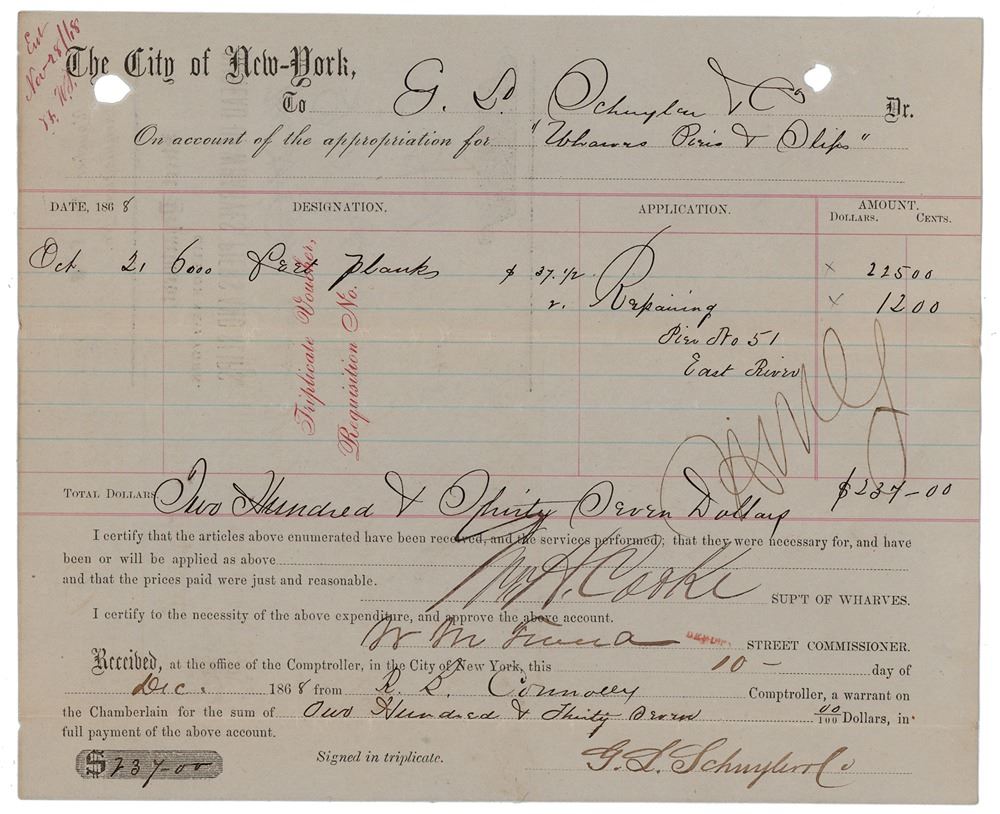 Ent
Nov 28/68
The City of New-York,
To G. L. Schuyler & Co Dr.
On account of the appropriation for "Wharves Piers & Slips"
DATE, 1868 DESIGNATION. APPLICATION. AMOUNT.
DOLLARS. CENTS.
Oct. 21 6000 feet planks $ 37.1/2 225 00
2. Repairing 12 00
Pier No 51
East River
Triplicate Voucher,
Requisition No.
TOTAL DOLLARS Two Hundred & Thirty Seven Dollars $237-00
I certify that the articles above enumerated have been received, and the services performed; that they were necessary for, and have
been or will be applied as above
and that the prices paid were just and reasonable.
Wm H. Cooke SUP'T OF WHARVES.
I certify to the necessity of the above expenditure, and approve the above account.
DEPUTY STREET COMMISSIONER.
Received, at the office of the Comptroller, in the City of New York, this 10 - day of
Dec. 1868 from R. B. Connolly Comptroller, a warrant on
the Chamberlain for the sum of Two Hundred & Thirty Seven 00/100 Dollars, in
full payment of the above account.
$237-00 Signed in triplicate. G. L. Schuyler & Co